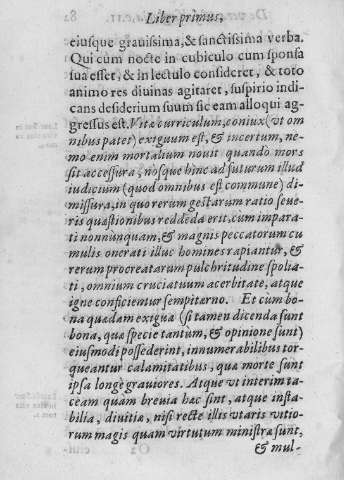 Liber primus,
eiusque grauissima, & sanctissima verba.
Qui cum nocte in cubiculo cum sponsa
sua esset, & in lectulo consideret, & toto
animo res diuinas agitaret, suspirio indi-
cans desiderium suum sic eam alloqui ag-
gressus est. Vitæ curriculum, coniux (vt om
nibus patet) exiguum est, & incertum, ne-
mo enim mortalium nouit quando mors
sit accessura, nósque hinc ad futurum illud
iudicium (quod omnibus est commune) di-
missura, in quo rerum gestarum ratio seue-
ris quæstionibus reddeda erit, cum impara-
ti nonnunquam, & magnis peccatorum cu
mulis onerati illuc homines rapiantur, &
rerum procreatarum pulchritudine spolia-
ti, omnium cruciatuum acerbitate, atque
igne conficientur sempitærno. Et cum bo-
na quædam exigua (si tamen dicenda sunt
bona, quæ specie tantum, & opinione sunt)
eiusmodi possederint, innumerabilibus tor-
queantur calamitatibus, quæ morte sunt
ipsa longè grauiores. Atque vt interim ta-
ceam quàm breuia hæc sint, atque insta-
bilia, diuitiæ, nisi recte illis vtaris vitio-
rum magis quam virtutum ministræ sunt,
& mul-